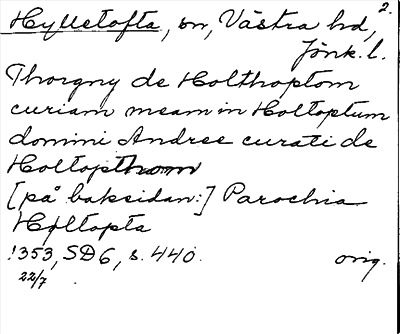 2.
Hylletofta, sn, Västra hd,
Jönk. l.
Thorgny de Holthoptom
curiam meam in Holtoptum
domini Andree curati de
Holtopthom
[på baksidan:] Parochia
Holtopta
1353, SD 6, s. 440. orig.
22/7